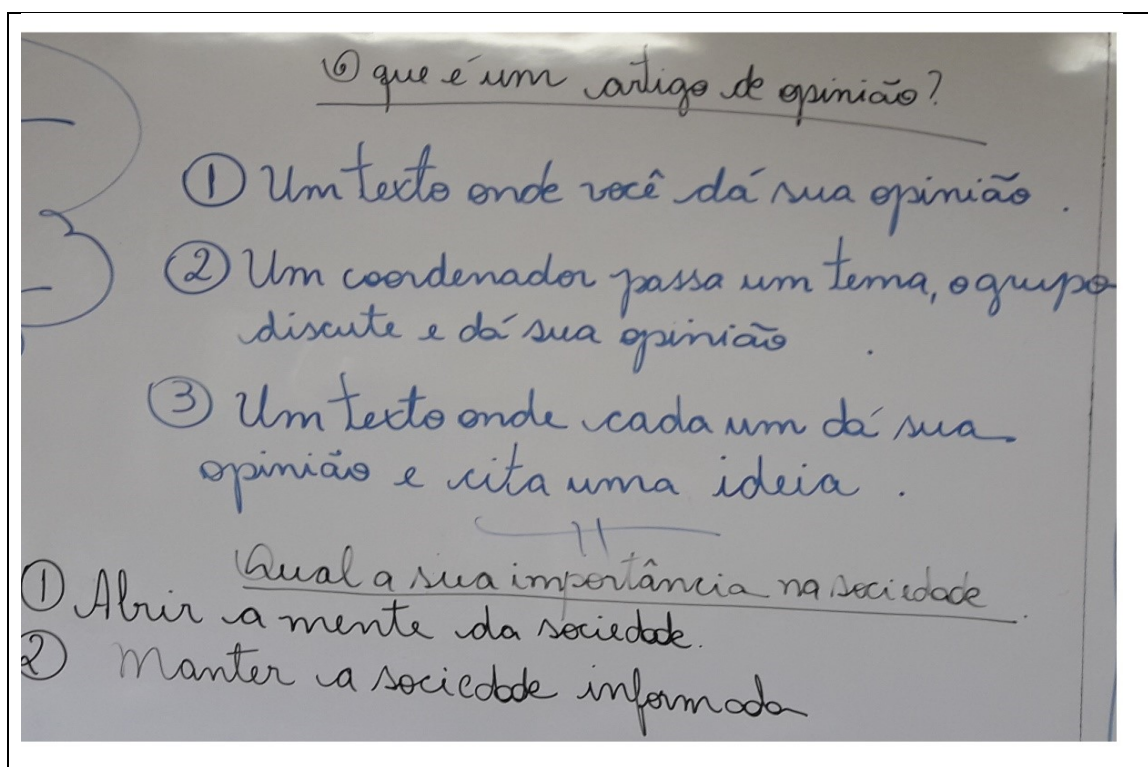 O que é um artigo de opinião?
① Um texto onde você dá sua opinião.
② Um coordenador passa um tema, o grupo
discute e dá sua opinião.
③ Um texto onde cada um dá sua
opinião e cita uma ideia.
Qual a sua importância na sociedade
① Abrir a mente da sociedade.
② Manter a sociedade informada